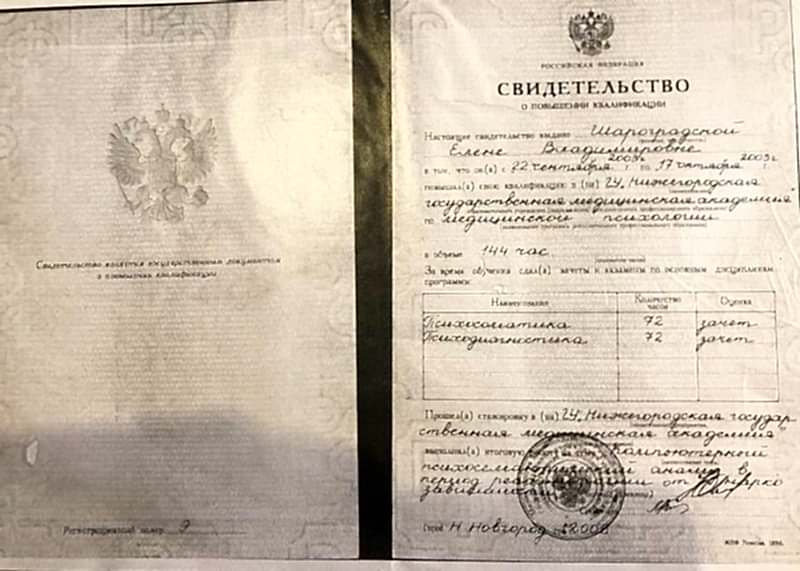 Свидетельство является государственным документом
о повышении квалификации
Регистрационный номер 9
РОССИЙСКАЯ ФЕДЕРАЦИЯ
СВИДЕТЕЛЬСТВО
О ПОВЫШЕНИИ КВАЛИФИКАЦИИ
Настоящее свидетельство выдано Шароградской
Елене Владимировне
в том, что он(а) с 22 сентября 2003 г. по 17 октября 2003 г.
повышал(а) свою квалификацию в (на) ГУ. Нижегородская
государственная медицинская академия
по медицинской психологии
в объеме 144 час
За время обучения сдал(а) зачеты и экзамены по основным дисциплинам
программы:
Наименование Количество часов Оценка
Психосоматика 72 зачет
Психодиагностика 72 зачет
Прошел(а) стажировку в (на) ГУ. Нижегородская государ
ственная медицинская академия
выполнил(а) итоговую работу на тему Компьютерный
психосемантический анализ в
период от
Город Н Новгород